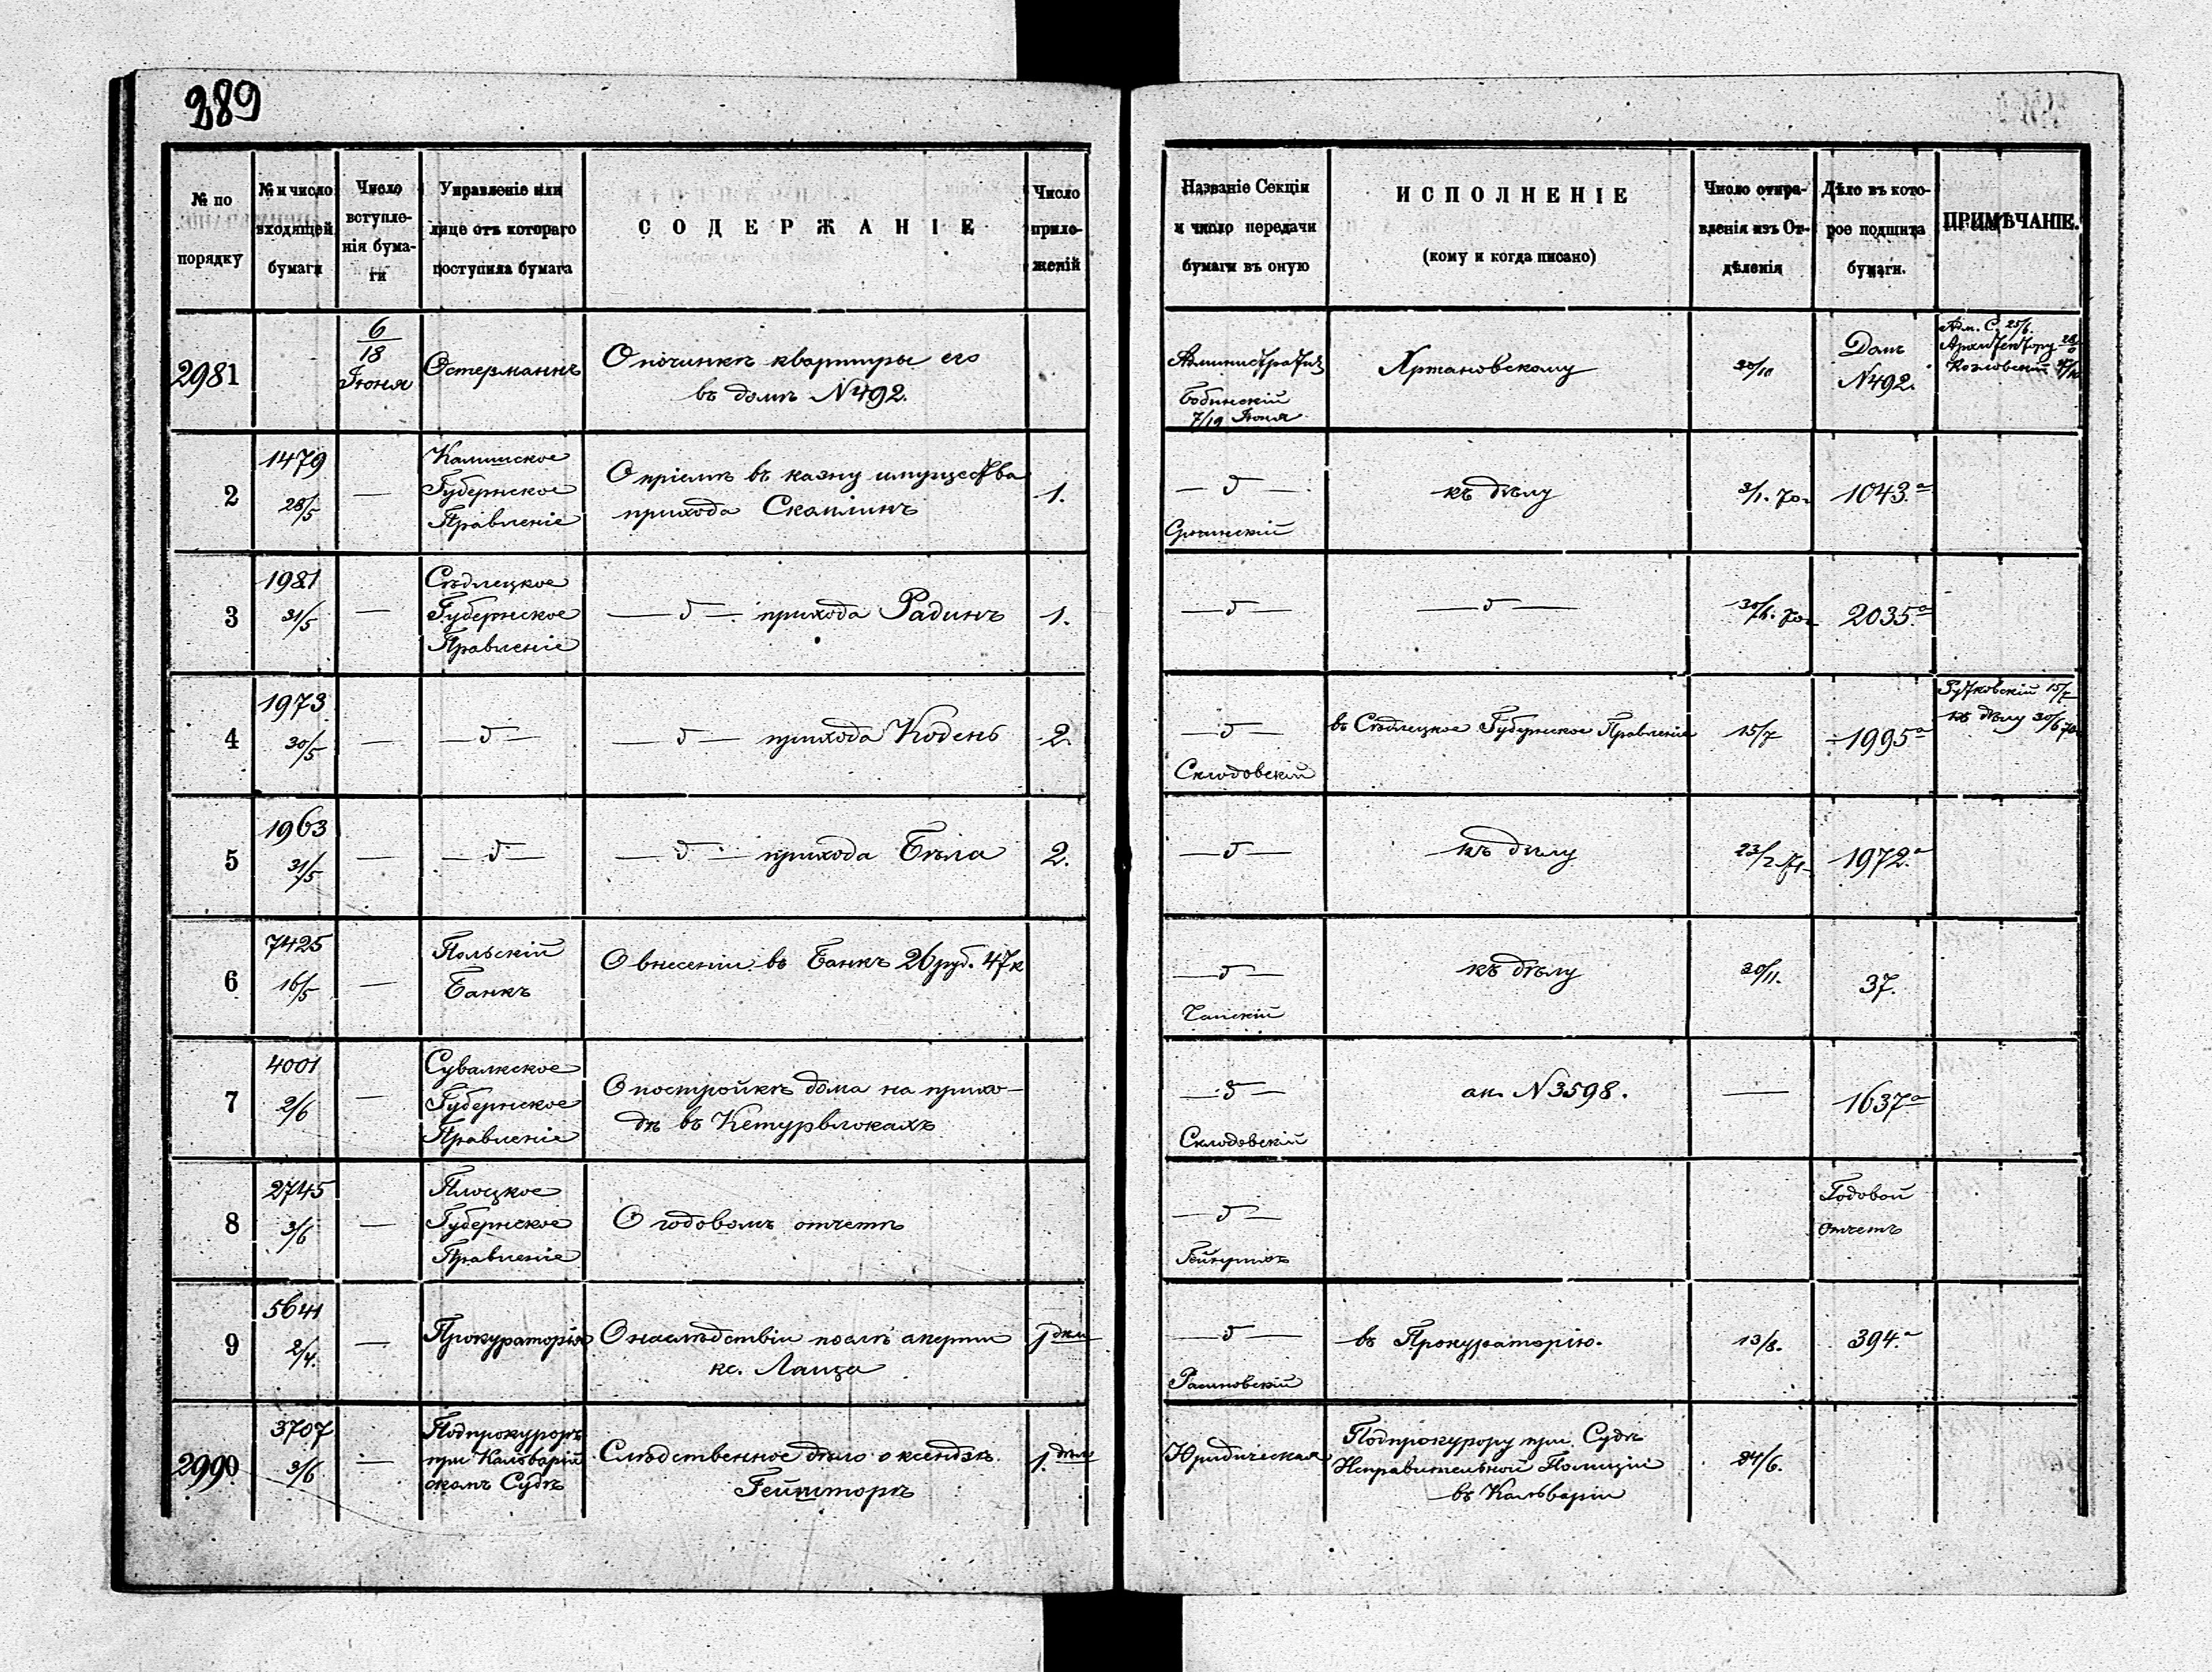 289
№ по порядку
№ и число входящей бумаги
Число вступле-
нія бума-
ги
Управленіе или
лице отъ котораго
поступила бумага
СОДЕРЖАНІЕ
Число
прило-
женій
Названіе Секціи
и число передачи
бумаги въ оную
ИСПОЛНЕНІЕ
(кому и когда писано)
Число отпра-
вленія изъ От-
дѣленія
Дѣло въ кото-
рое подшита
бумаги.
ПРИМѢЧАНІЕ.
2981
6/18
Іюня
Остерманнъ
О починкѣ квартиры его
въ домѣ N492.
Администрація
7/19 Іюня
Хртановскому
Домъ
N492.
Адм. С. 25/6.
Архитектору
Козловскій
2
1479
28/5
—
Калишское
Губернское
Правленіе
О пріемѣ въ казну имущества
прихода Скамлинъ
1.
— д —
къ дѣлу
3/1. 70
1043.а
3
1981
31/5
—
Сѣдлецкое
Губернское
Правленіе
— д — прихода Радинъ
1.
— д —
— д —
2035.а
4
1973
30/5
—
— д —
— д — прихода Кодень
2
— д —
Склодовскій
въ Сѣдлецкое Губернское Правленіе
15/7
1995а
Гутковскій 15/7
къ дѣлу 30/6 70
5
1963
31/5
—
— д —
— д — прихода Бѣла
2.
— д —
къ дѣлу
23/2 71
1972.а
6
7425
16/5
—
Польскій
Банкъ
О внесеніи въ Банкъ 26 руб. 47 к
— д —
къ дѣлу
20/11.
37.
7
4001
2/6
—
Сувалкское
Губернское
Правленіе
О постройкѣ дома на прихо-
дѣ въ Кетурвлокахъ
— д —
Склодовскій
ак. N3598.
—
1637а
8
2745
3/6
—
Плоцкое
Губернское
Правленіе
О годовомъ отчетѣ
— д —
Годовой
отчетъ
9
5641
2/4.
—
Прокураторія
О наслѣдствіи послѣ смерти
кс. Лаща
1
— д —
въ Прокураторію.
13/8.
394.а
2990
3707
3/6
—
Подпрокуроръ
при Кальварій
скомъ Судѣ
Слѣдственное дѣло о ксендзѣ
Гейшторѣ
1. дѣло
Юридическая
Подпрокурору при Судѣ
Исправительной Полиціи
въ Кальваріи
24/6.